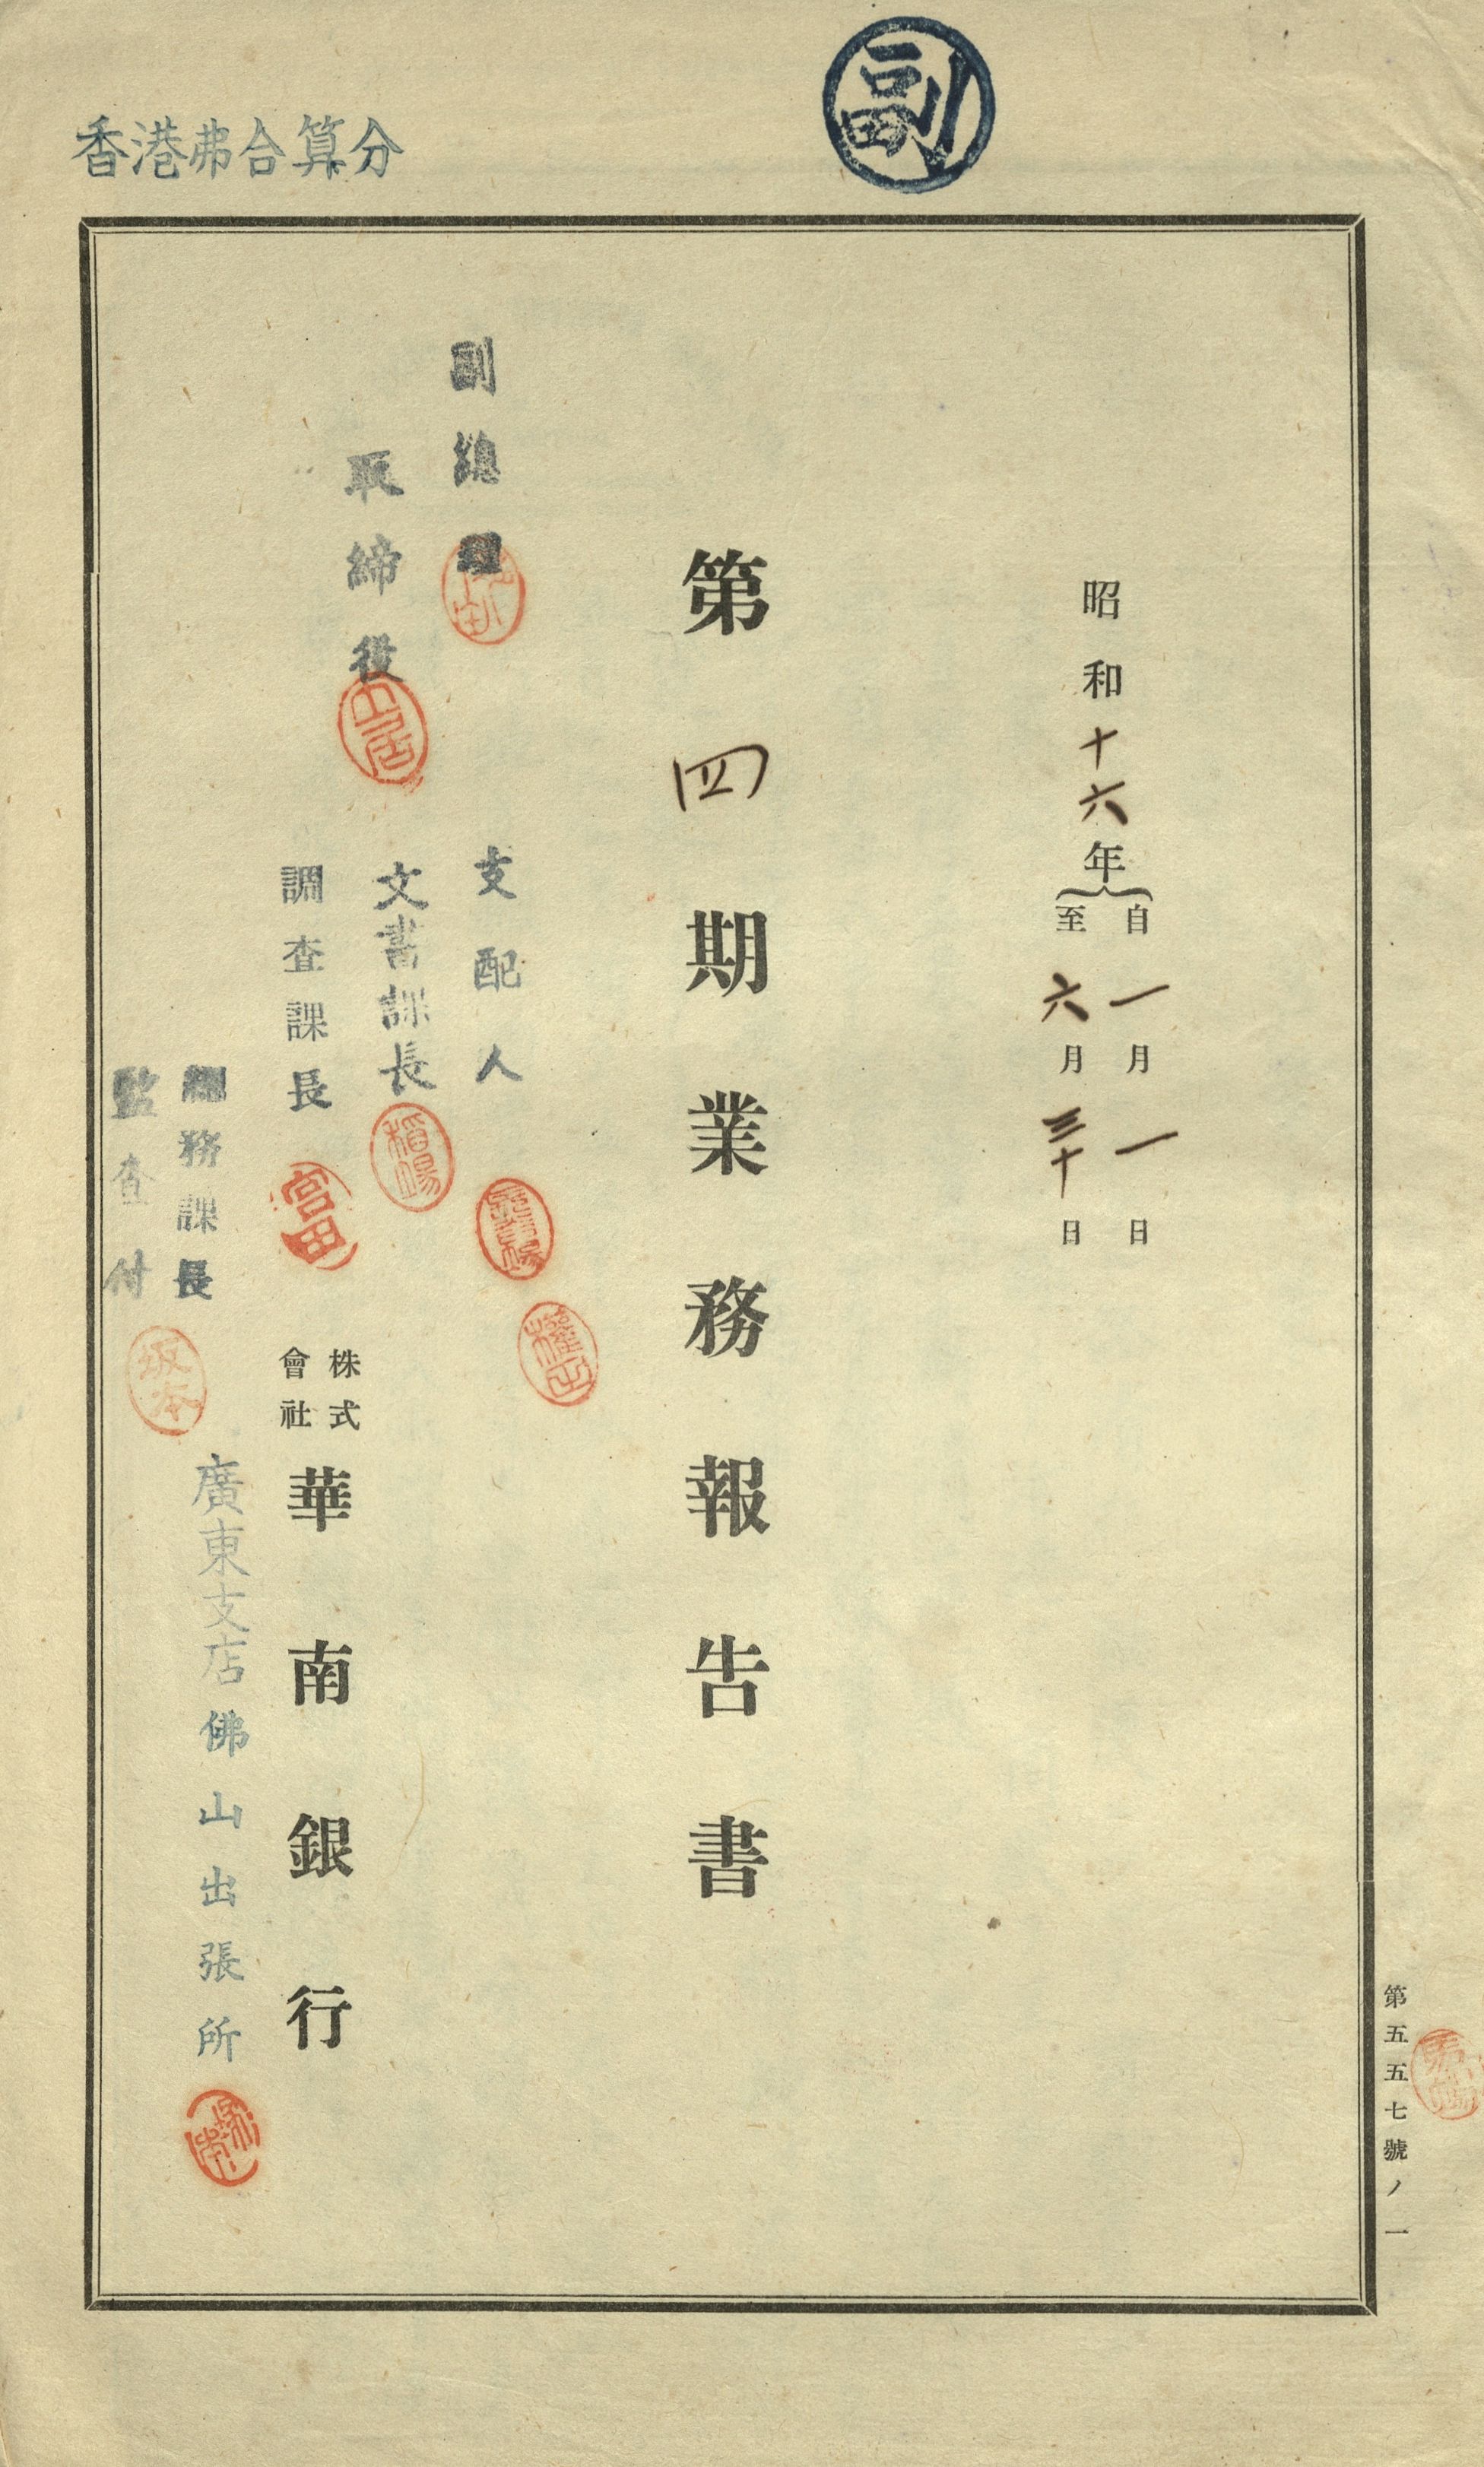 副
香港弗合算分
昭和十六年
自一月一日
至六月三十日
第四期業務報告書
副總理
取締役
山居
支配人
文書課長
稻場
調查課長
宮田
總務課長
監查付
坂本
株式
會社
華南銀行
廣東支店佛山出張所
第五五七號ノ一